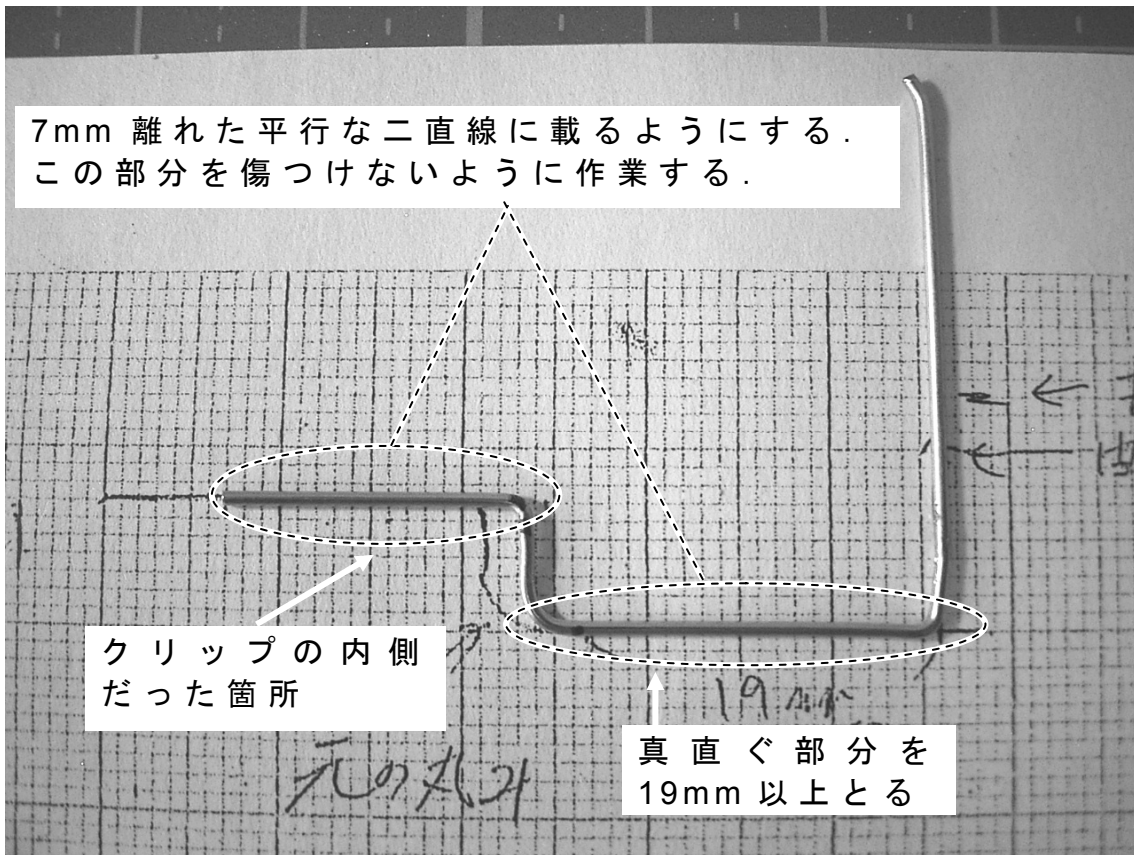 7mm 離れた平行な二直線に載るようにする.
この部分を傷つけないように作業する.
クリップの内側
だった箇所
19 mm
真直ぐ部分を
19mm 以上とる